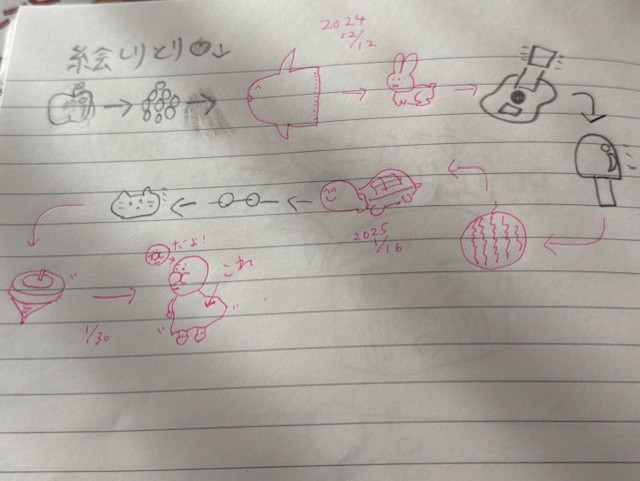 絵しりとり↓
2024
12/12
2025
1/16
だよ!
これ
1/30